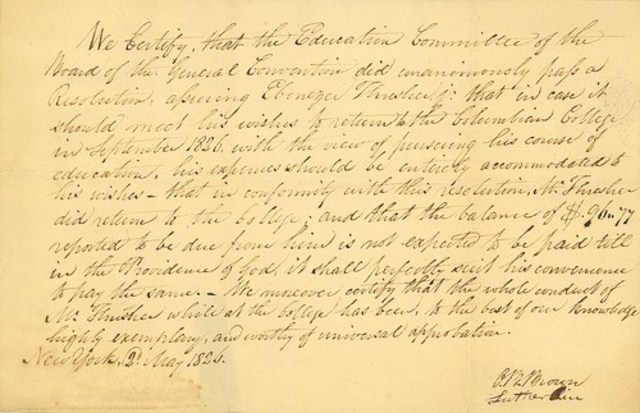 We Certify, that the Education Committee of the
Board of the General Convention did unanimously pass a
Resolution, assuring Ebenezer Thresher jr: that in case it
should meet his wishes to return to the Columbian College
in September 1826, with the view of pursuing his course of
education, his expenses should be entirely accommodated to
his wishes – that in conformity with this resolution, Mr. Thresher
did return to the College; and that the balance of $. 96..77
reported to be due from him is not expected to be paid till
in the Providence of God, it shall perfectly suit his convenience
to pay the same. – We moreover certify that the whole conduct of
Mr. Thresher while at the College has been, to the best of our knowledge
highly exemplary, and worthy of universal approbation.
New York, 2d. May 1826.
O. B. Brown
Luther Rice